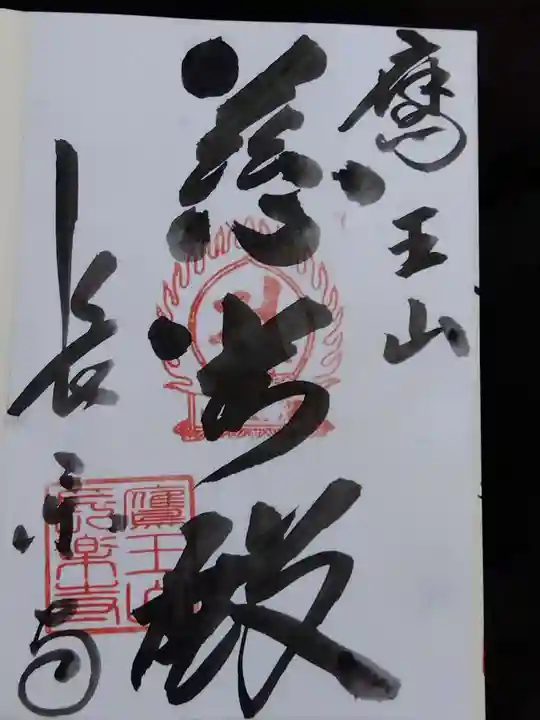 鷹王山
慈光殿
長楽寺
鷹王山
長楽寺